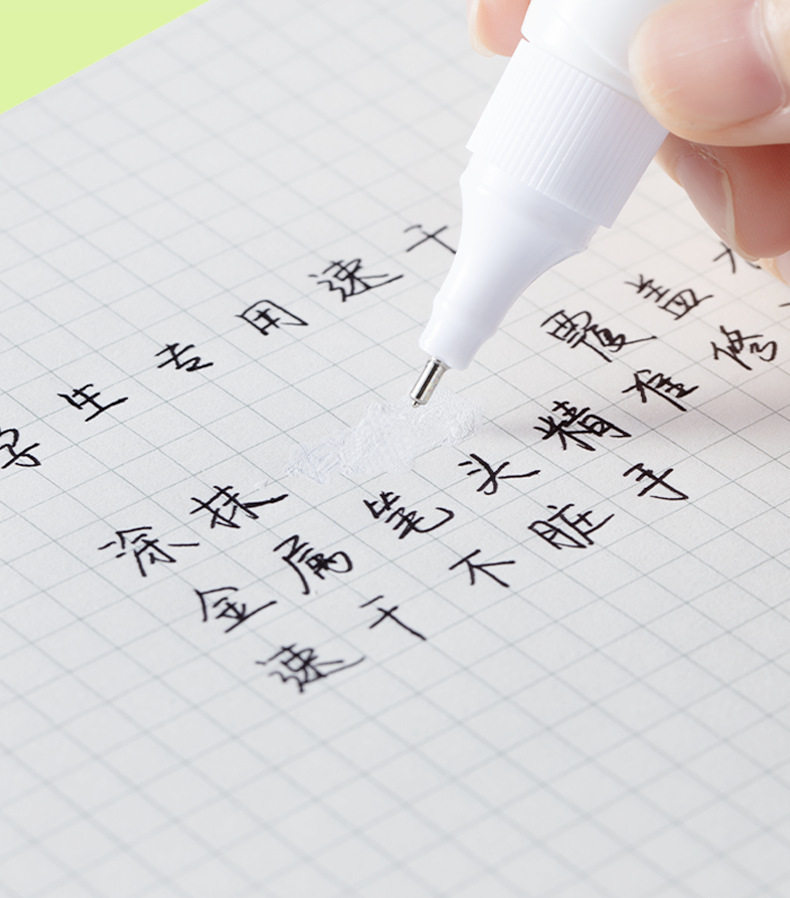 学生专用速干
涂抹 覆盖
金属笔头精准修
速干不脏手